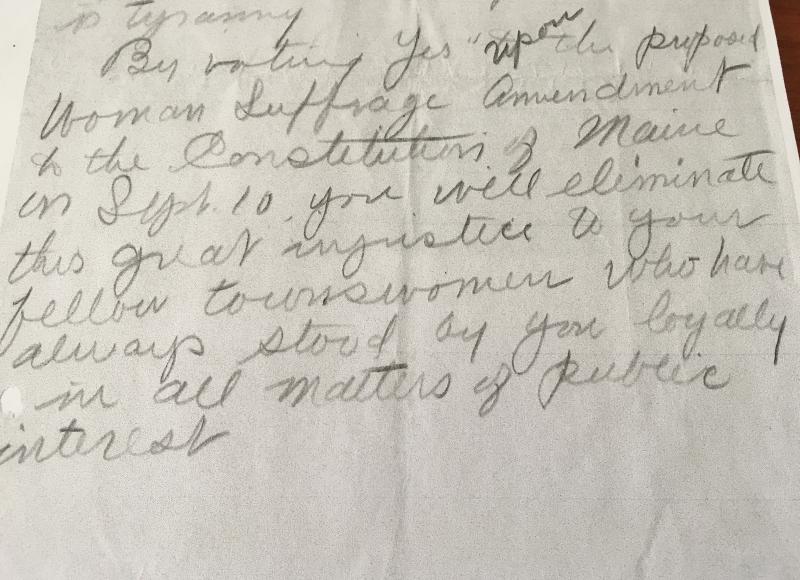 is tyranny
By voting Yes "upon the proposed
Woman Suffrage Amendment
to the Constitution of Maine
on Sept. 10, you will eliminate
this great injustice to your
fellow townswomen who have
always stood by you loyally
in all matters of public
interest